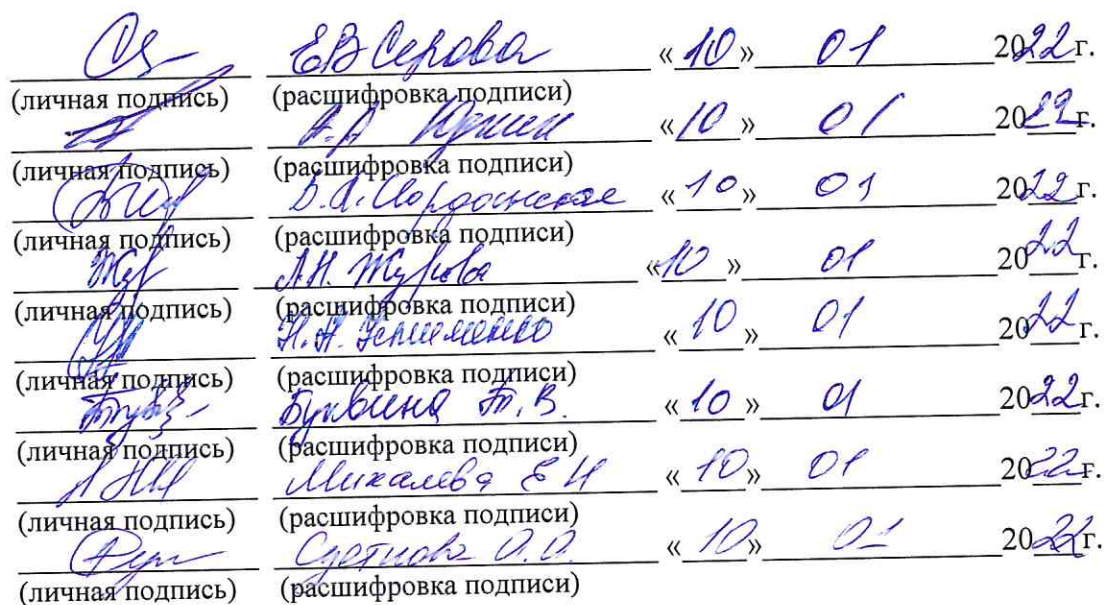 ЕВ Серова «10» 01 2022г.
(личная подпись) (расшифровка подписи)
А.А «10» 01 2022г.
(личная подпись) (расшифровка подписи)
«10» 01 2022г.
(личная подпись) (расшифровка подписи)
Жур Л.Н. Журова «10» 01 2022г.
(личная подпись) (расшифровка подписи)
Н.Н. Устименко «10» 01 2022г.
(личная подпись) (расшифровка подписи)
Буквина Т.В. «10» 01 2022г.
(личная подпись) (расшифровка подписи)
Михалева Е Н «10» 01 2022г.
(личная подпись) (расшифровка подписи)
О.О. «10» 01 2022г.
(личная подпись) (расшифровка подписи)